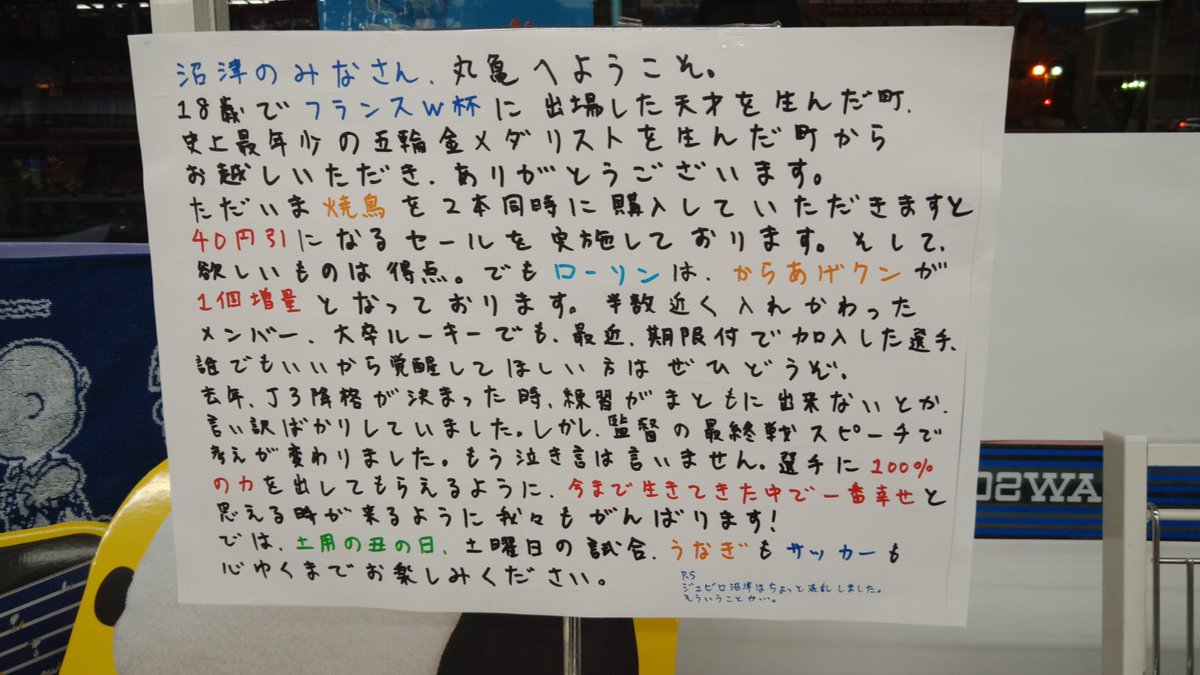 沼津のみなさん、丸亀へようこそ。
18歳でフランスW杯に出場した天才を生んだ町、
史上最年少の五輪金メダリストを生んだ町から
お越しいただき、ありがとうございます。
ただいま焼鳥を2本同時に購入していただきますと
40円引になるセールを実施しております。そして、
欲しいものは得点。でもローソンは、からあげクンが
1個増量となっております。半数近く入れかわった
メンバー、大卒ルーキーでも、最近、期限付で加入した選手、
誰でもいいから覚醒してほしい方はぜひどうぞ。
去年、J3降格が決まった時、練習がまともに出来ないとか、
言い訳ばかりしていました。しかし、監督の最終戦スピーチで
考えが変わりました。もう泣き言は言いません。選手に100%
の力を出してもらえるように、今まで生きてきた中で一番幸せと
思える時が来るように我々もがんばります!
では、土用の丑の日、土曜日の試合、うなぎもサッカーも
心ゆくまでお楽しみください。
P.S
ジュビロ沼津はちょっと混乱しました。
そういうことか…。